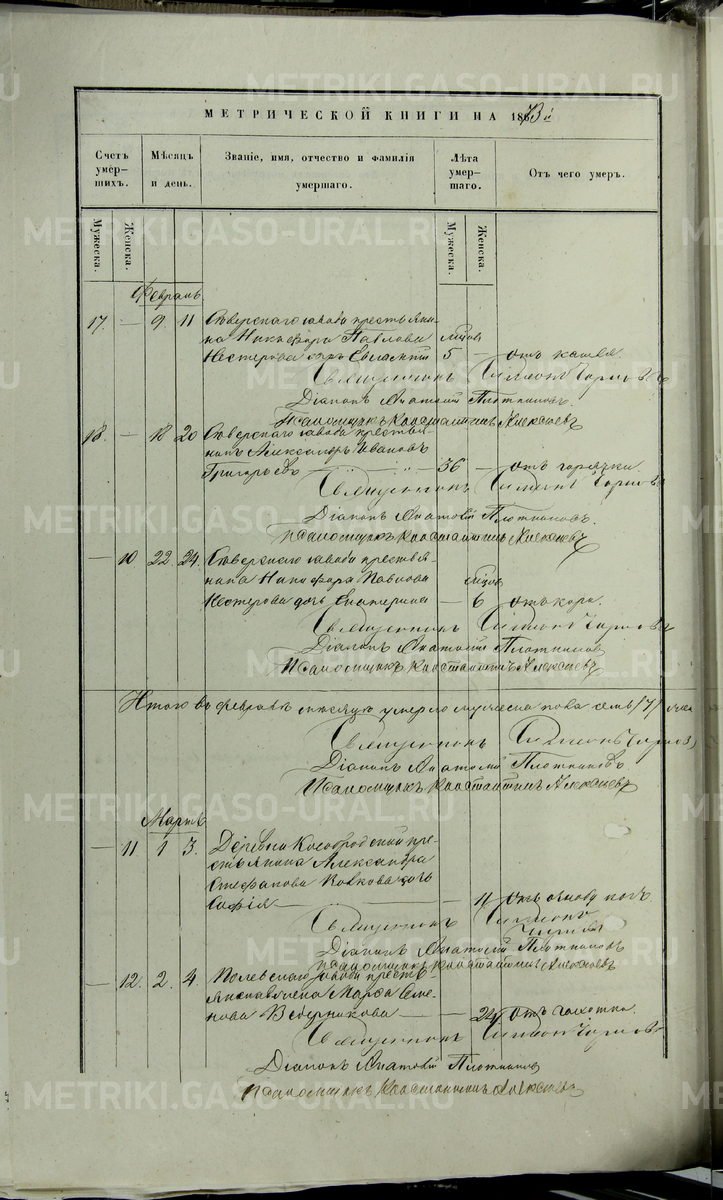 МЕТРИЧЕСКОЙ КНИГИ НА 1873й
Счетъ умер-шихъ.
Мѣсяцъ и день.
Званіе, имя, отчество и фамилія умершаго.
Лѣта умер-шаго.
Отъ чего умеръ.
Мужеска.
Женска.
Мужеска.
Женска.
Февраль.
17. — 9 11 Сѣверскаго завода крестьяни-
на Никифора Павлова мѣсяцовъ
Нестерова сынъ 5 — отъ кашля.
Священникъ Симеонъ
Діаконъ Анатолій Плотниковъ
Псаломщикъ Константинъ Алексѣевъ
18. — 18 20 Сѣверскаго завода крестья-
нинъ Александръ Ивановъ
Григорьевъ — 36 — отъ горячки
Священникъ Симеонъ
Діаконъ Анатолій Плотниковъ.
Псаломщикъ Константинъ Алексѣевъ
— 10 22. 24. Сѣверскаго завода крестья-
нина Никифора Павлова мѣсяцовъ
Нестерова дочь Екатерина — 6 отъ кори.
Священникъ Симеонъ
Діаконъ Анатолій Плотниковъ
Псаломщикъ Константинъ Алексѣевъ
Итого въ февралѣ мѣсяцѣ умерло мужеска пола семь /7/
Священникъ Симеонъ
Діаконъ Анатолій Плотниковъ
Псаломщикъ Константинъ Алексѣевъ
Мартъ
— 11 1 3. Деревни Кособродской кре-
стьянина Александра
Стефанова дочь
Софія — 11 отъ
Священникъ Симеонъ
Діаконъ Анатолій Плотниковъ
Псаломщикъ Константинъ Алексѣевъ
— 12. 2. 4. Полевскаго завода кресть-
янская жена Марѳа Семе-
нова Ведерникова — 24 отъ чахотки
Священникъ Симеонъ
Діаконъ Анатолій Плотниковъ
Псаломщикъ Константинъ Алексѣевъ
METRIKI.GASO-URAL.RU